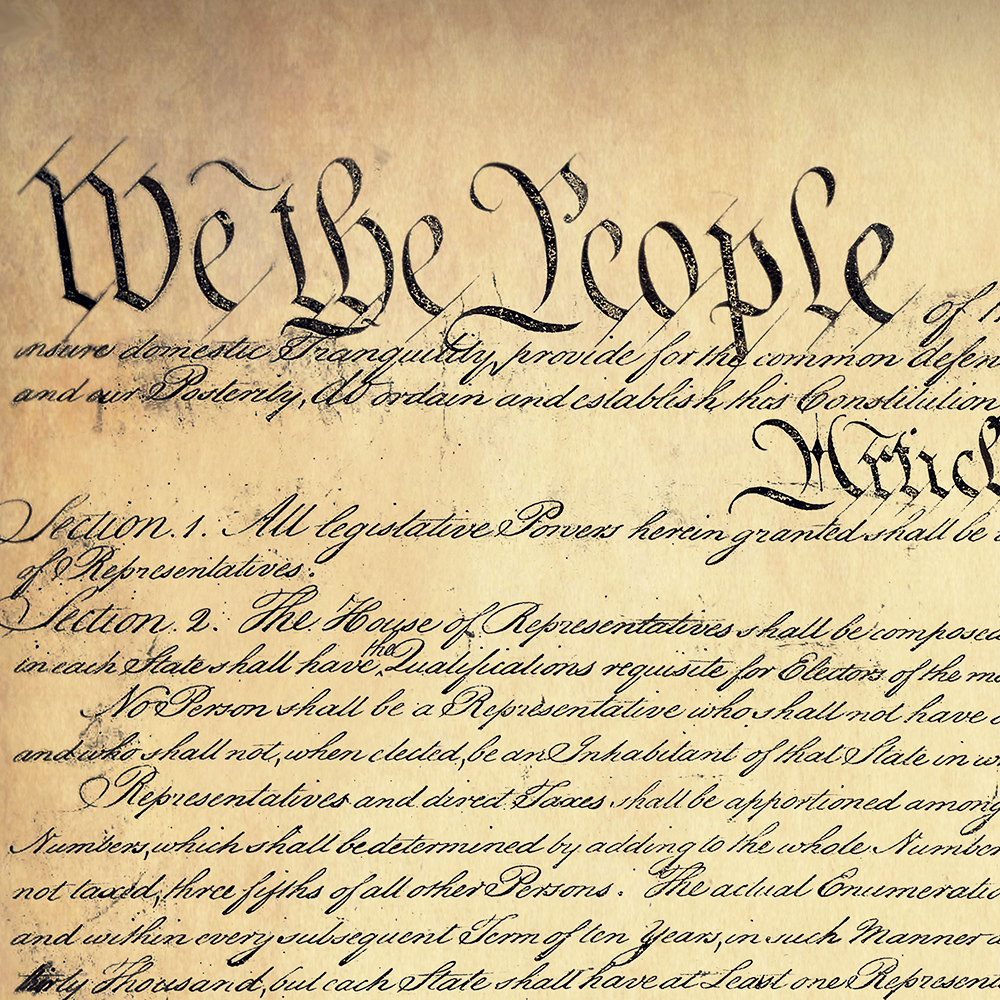 We the People of
nsure domestic Tranquility, provide for the common defen
and our Posterity, do ordain and establish this Constitution
Articl
Section. 1. All legislative Powers herein granted shall be
of Representatives.
Section. 2. The House of Representatives shall be composed
in each State shall have the Qualifications requisite for Electors of the mo
No Person shall be a Representative who shall not have
and who shall not, when elected, be an Inhabitant of that State in w
Representatives and direct Taxes shall be apportioned among
Numbers, which shall be determined by adding to the whole Number
not taxed, three fifths of all other Persons. The actual Enumeratio
and within every subsequent Term of ten Years, in such Manner
thirty Thousand, but each State shall have at Least one Represen